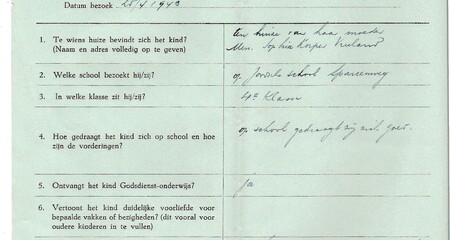 Datum bezoek 28/4 1943
1. Te wiens huize bevindt zich het kind?
(Naam en adres volledig op te geven)
ten huize van haar moeder
Mevr. Sophia
2. Welke school bezoekt hij/zij?
op Joodsche school Spaarneweg
3. In welke klasse zit hij/zij?
4e Klasse
4. Hoe gedraagt het kind zich op school en hoe
zijn de vorderingen?
op school gedraagt zij zich goed.
5. Ontvangt het kind Godsdienst-onderwijs?
Ja
6. Vertoont het kind duidelijke voorliefde voor
bepaalde vakken of bezigheden? (dit vooral voor
oudere kinderen in te vullen)